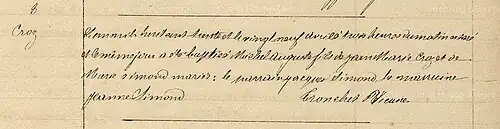 8
Croz
L'an mil huit cent trente et le vingt neuf avril à trois heures du matin est né
et le même jour a été baptisé Michel Auguste fils de Jean Marie Croz et de
Marie Simond mariés : le parrain Jacques Simond la marraine
Jeanne Simond Tronchet Vicaire